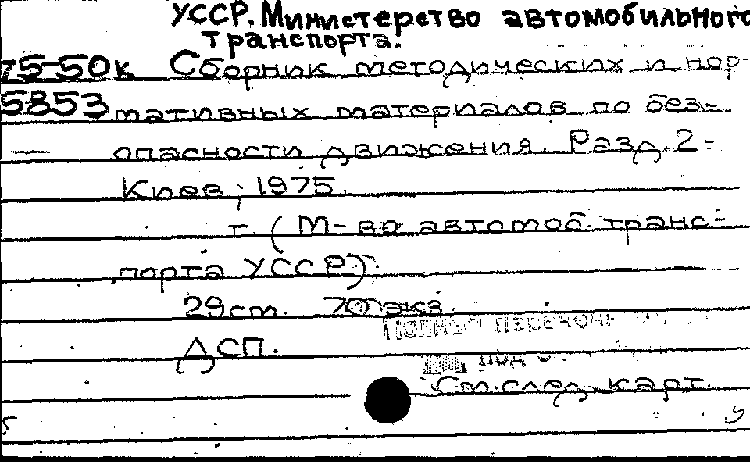 УССР. Министерство автомобильного
транспорта.
75-50к Сборник методических и нор-
5853 мативных материалов по без-
опасности движения. Разд. 2-
Киев, 1975.
т. (М-во автомоб. транс-
порта УССР).
29см. 70 экз.
Полный перечень
ДСП. под
См. след. карт.